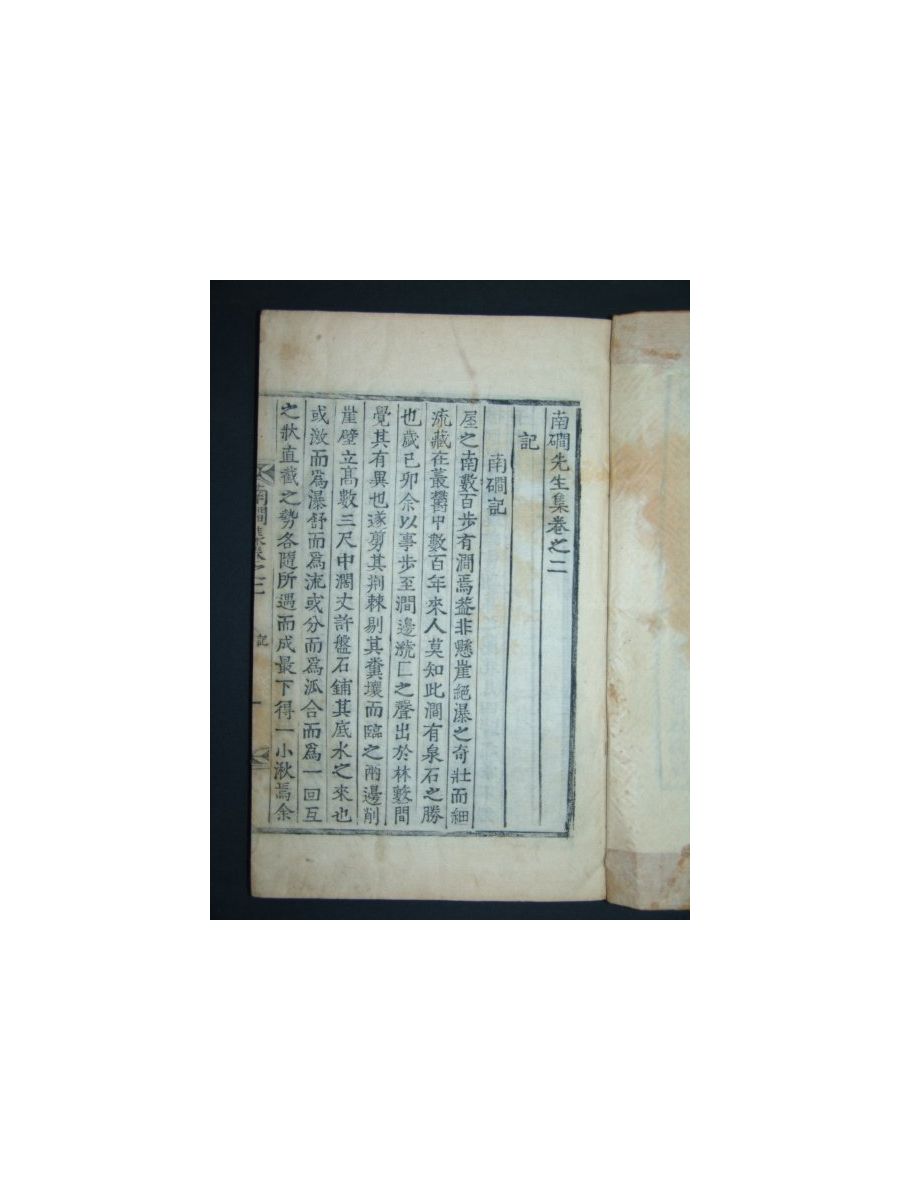 南磵先生集卷之二
記
南磵記
屋之南數百步有澗焉蓋非懸崖絕瀑之奇壯而細
流藏在叢鬱中數百年來人莫知此澗有泉石之勝
也歲己卯余以事步至澗邊㶁㶁之聲出於林藪間
覺其有異也遂剪其荊棘剔其糞壤而臨之兩邊削
崖壁立高數三尺中濶丈許盤石鋪其底水之來也
或激而為瀑舒而為流或分而為派合而為一回互
之狀直截之勢各隨所遇而成最下得一小湫焉余
南磵集卷之二 記 一